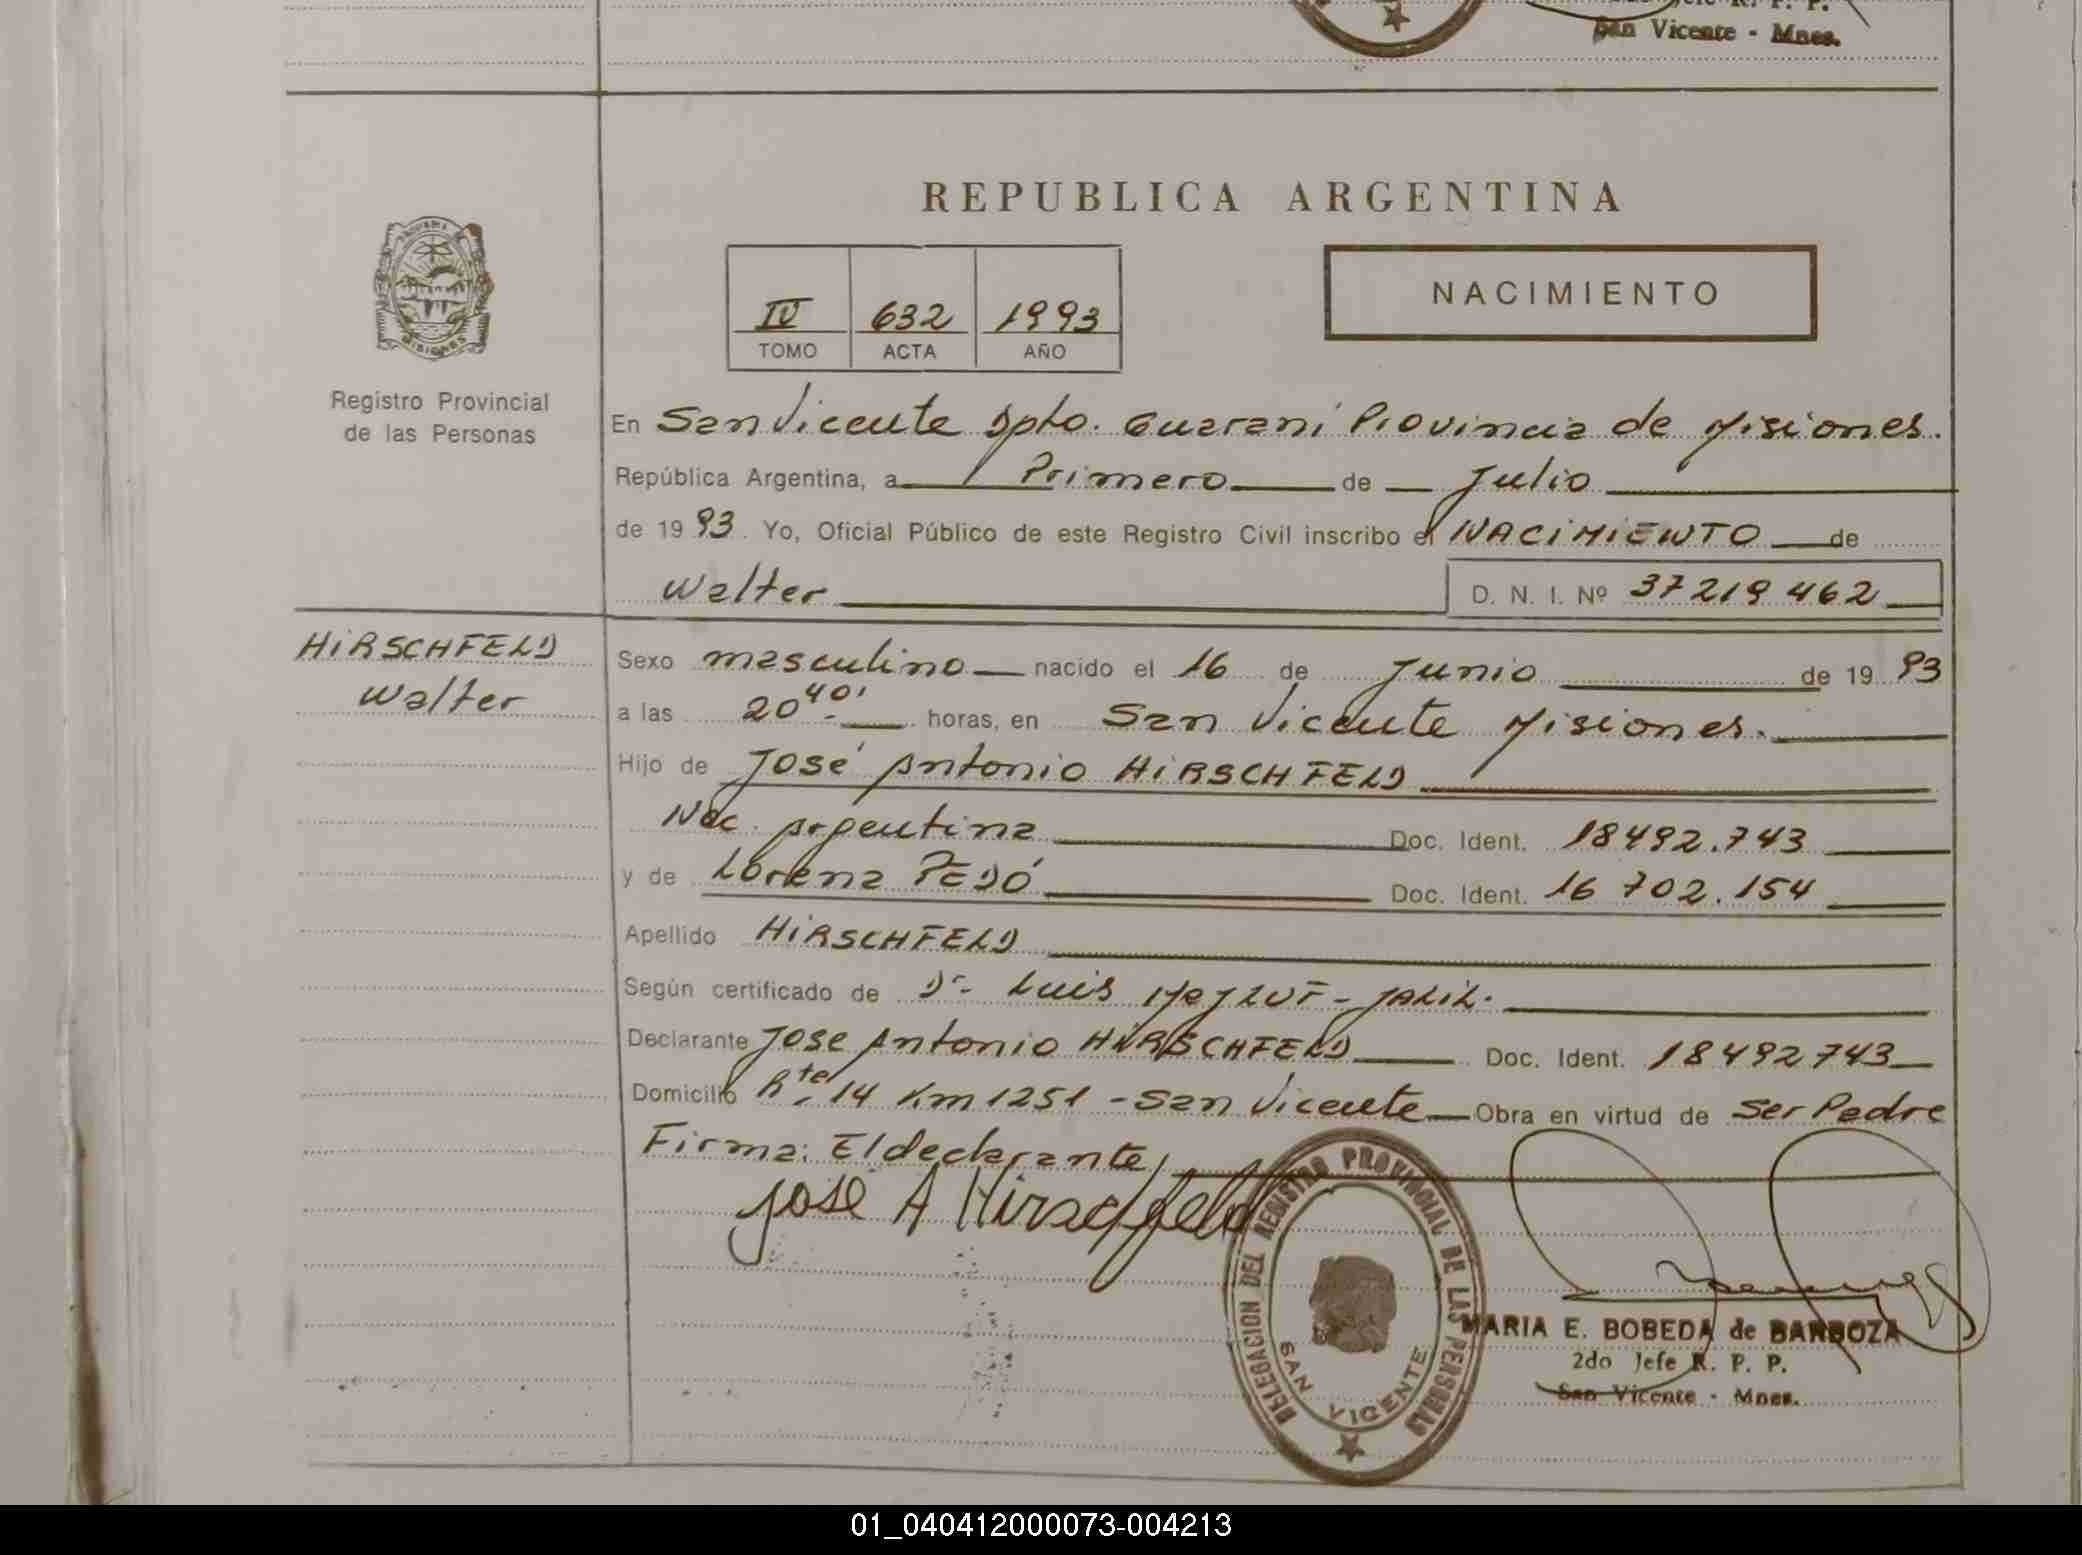 San Vicente - Mnes.
REPUBLICA ARGENTINA
IV 632 1993
TOMO ACTA AÑO
NACIMIENTO
MISIONES
Registro Provincial
de las Personas
En San Vicente Dpto. Guaraní Provincia de Misiones.
República Argentina, a Primero de Julio
de 1993. Yo, Oficial Público de este Registro Civil inscribo el NACIMIENTO de
Walter D. N. I. Nº 37219462
HIRSCHFELD
Walter
Sexo masculino nacido el 16 de Junio de 1993
a las 20 40' horas, en San Vicente Misiones.
Hijo de José Antonio HIRSCHFELD
Nac. Argentina Doc. Ident. 18492.743
y de Lorena PEDÓ Doc. Ident. 16 702.154
Apellido HIRSCHFELD
Según certificado de Dr. Luis JALIL.
Declarante José Antonio HIRSCHFELD Doc. Ident. 18492743
Domicilio Rte. 14 Km 1251 - San Vicente Obra en virtud de Ser Padre
Firma: El declarante
José A Hirschfeld
DELEGACION DEL REGISTRO PROVINCIAL DE LAS PERSONAS
SAN VICENTE
MARIA E. BOBEDA de BARBOZA
2do Jefe R. P. P.
San Vicente - Mnes.
01_040412000073-004213